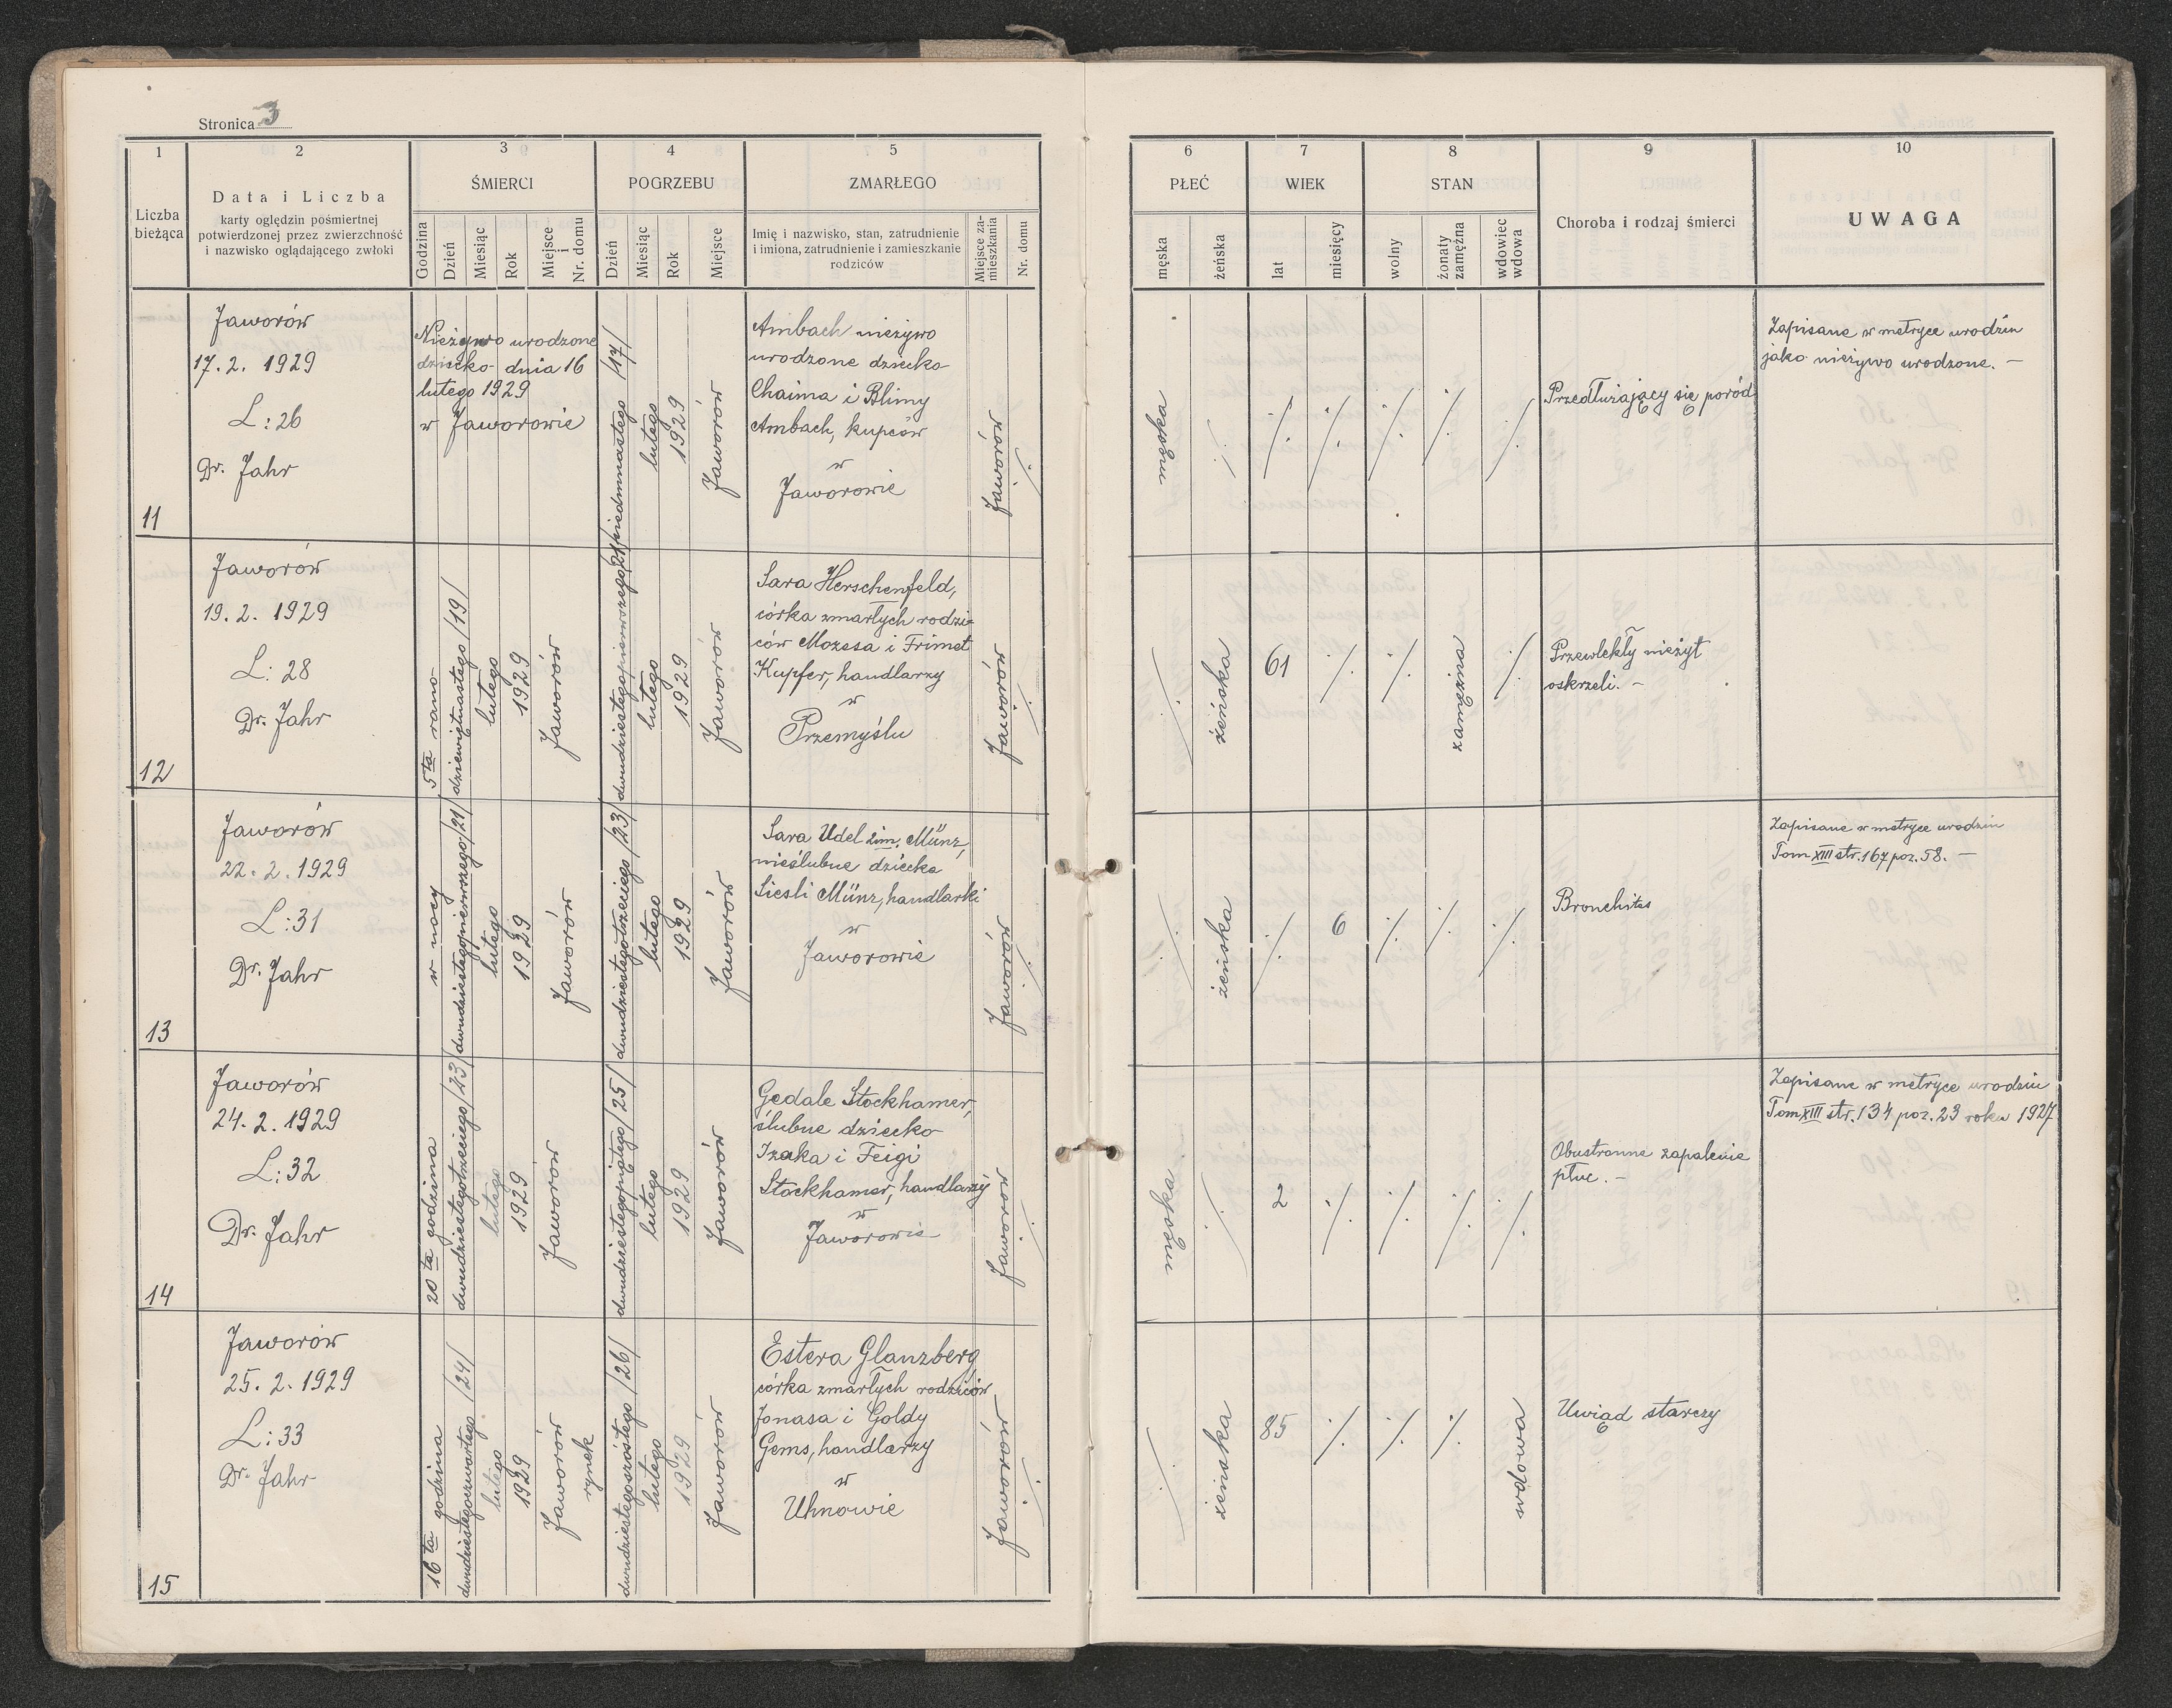 Stronica 3
1
2
3
4
5
6
7
8
9
10
Liczba
bieżąca
Data i Liczba
karty oględzin pośmiertnej
potwierdzonej przez zwierzchność
i nazwisko oglądającego zwłoki
ŚMIERCI
Godzina
Dzień
Miesiąc
Rok
Miejsce
i
Nr. domu
POGRZEBU
Dzień
Miesiąc
Rok
Miejsce
ZMARŁEGO
Imię i nazwisko, stan, zatrudnienie
i imiona, zatrudnienie i zamieszkanie
rodziców
Miejsce za-
mieszkania
Nr. domu
PŁEĆ
męska
żeńska
WIEK
lat
miesięcy
STAN
wolny
żonaty
zamężna
wdowiec
wdowa
Choroba i rodzaj śmierci
UWAGA
11
Jaworów
17. 2. 1929
L: 26
Dr. Jahr
Nieżywo urodzone
dziecko dnia 16
lutego 1929
w Jaworowie
siedmnastego /17/
lutego
1929
Jaworów
Ambach nieżywo
urodzone dziecko
Chaima i Blimy
Ambach, kupców
w
Jaworowie
Jaworów
./.
męska
./.
./.
./.
./.
./.
./.
Przedłużający się poród
Zapisane w metryce urodzin
jako nieżywo urodzone. –
12
Jaworów
19. 2. 1929
L: 28
Dr. Jahr
5ta rano
dziewiętnastego /19/
lutego
1929
Jaworów
dwudziestegopierwszego /21/
lutego
1929
Jaworów
Sara Herschenfeld,
córka zmarłych rodzi-
ców Mozesa i Frimet
Kupfer, handlarzy
w
Przemyślu
Jaworów
./.
./.
żeńska
61
./.
./.
zamężna
./.
Przewlekły nieżyt
oskrzeli. –
13
Jaworów
22. 2. 1929
L: 31
Dr. Jahr
w nocy
dwudziestegopierwszego /21/
lutego
1929
Jaworów
dwudziestegotrzeciego /23/
lutego
1929
Jaworów
Sara Udel 2im. Münz,
nieślubne dziecko
Siesli Münz, handlarki
w
Jaworowie
Jaworów
./.
./.
żeńska
./.
6
./.
./.
./.
Bronchites
Zapisane w metryce urodzin
Tom XIII str. 167 poz. 58. –
14
Jaworów
24. 2. 1929
L: 32
Dr. Jahr
20ta godzina
dwudziestegotrzeciego /23/
lutego
1929
Jaworów
dwudziestegopiątego /25/
lutego
1929
Jaworów
Gedale Stockhamer,
ślubne dziecko
Izaka i Feigi
Stockhamer, handlarzy
w
Jaworowie
Jaworów
./.
męska
./.
2
./.
./.
./.
./.
Obustronne zapalenie
płuc. –
Zapisane w metryce urodzin
Tom XIII str. 134 poz. 23 roku 1927
15
Jaworów
25. 2. 1929
L: 33
Dr. Jahr
16ta godzina
dwudziestegoczwartego /24/
lutego
1929
Jaworów
rynek
dwudziestegoszóstego /26/
lutego
1929
Jaworów
Estera Glanzberg
córka zmarłych rodziców
Jonasa i Goldy
Gems, handlarzy
w
Uhnowie
Jaworów
./.
./.
żeńska
85
./.
./.
./.
wdowa
Uwiąd starczy